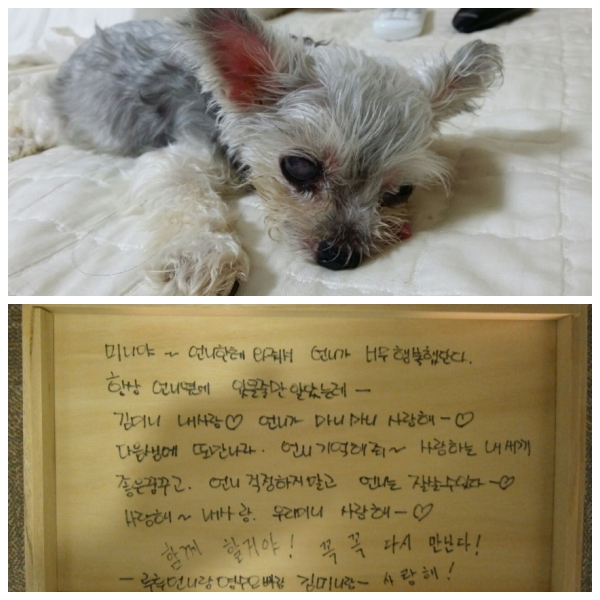 미니야 ~ 언니한테 와줘서 언니가 너무 행복했단다.
항상 언니곁에 있을줄만 알았는데 -
김미니 내사랑♡ 언니가 마니마니 사랑해 - ♡
다음생에 또만나자. 언니 기억해줘 ~ 사랑하는 내새끼
좋은꿈꾸고. 언니 걱정하지말고 언니는 잘살수있다 - ♡
사랑해 ~ 내사랑. 우리미니 사랑해 - ♡
함께 할거야! 꼭 꼭 다시 만난다!
김미니랑 - 사랑해!